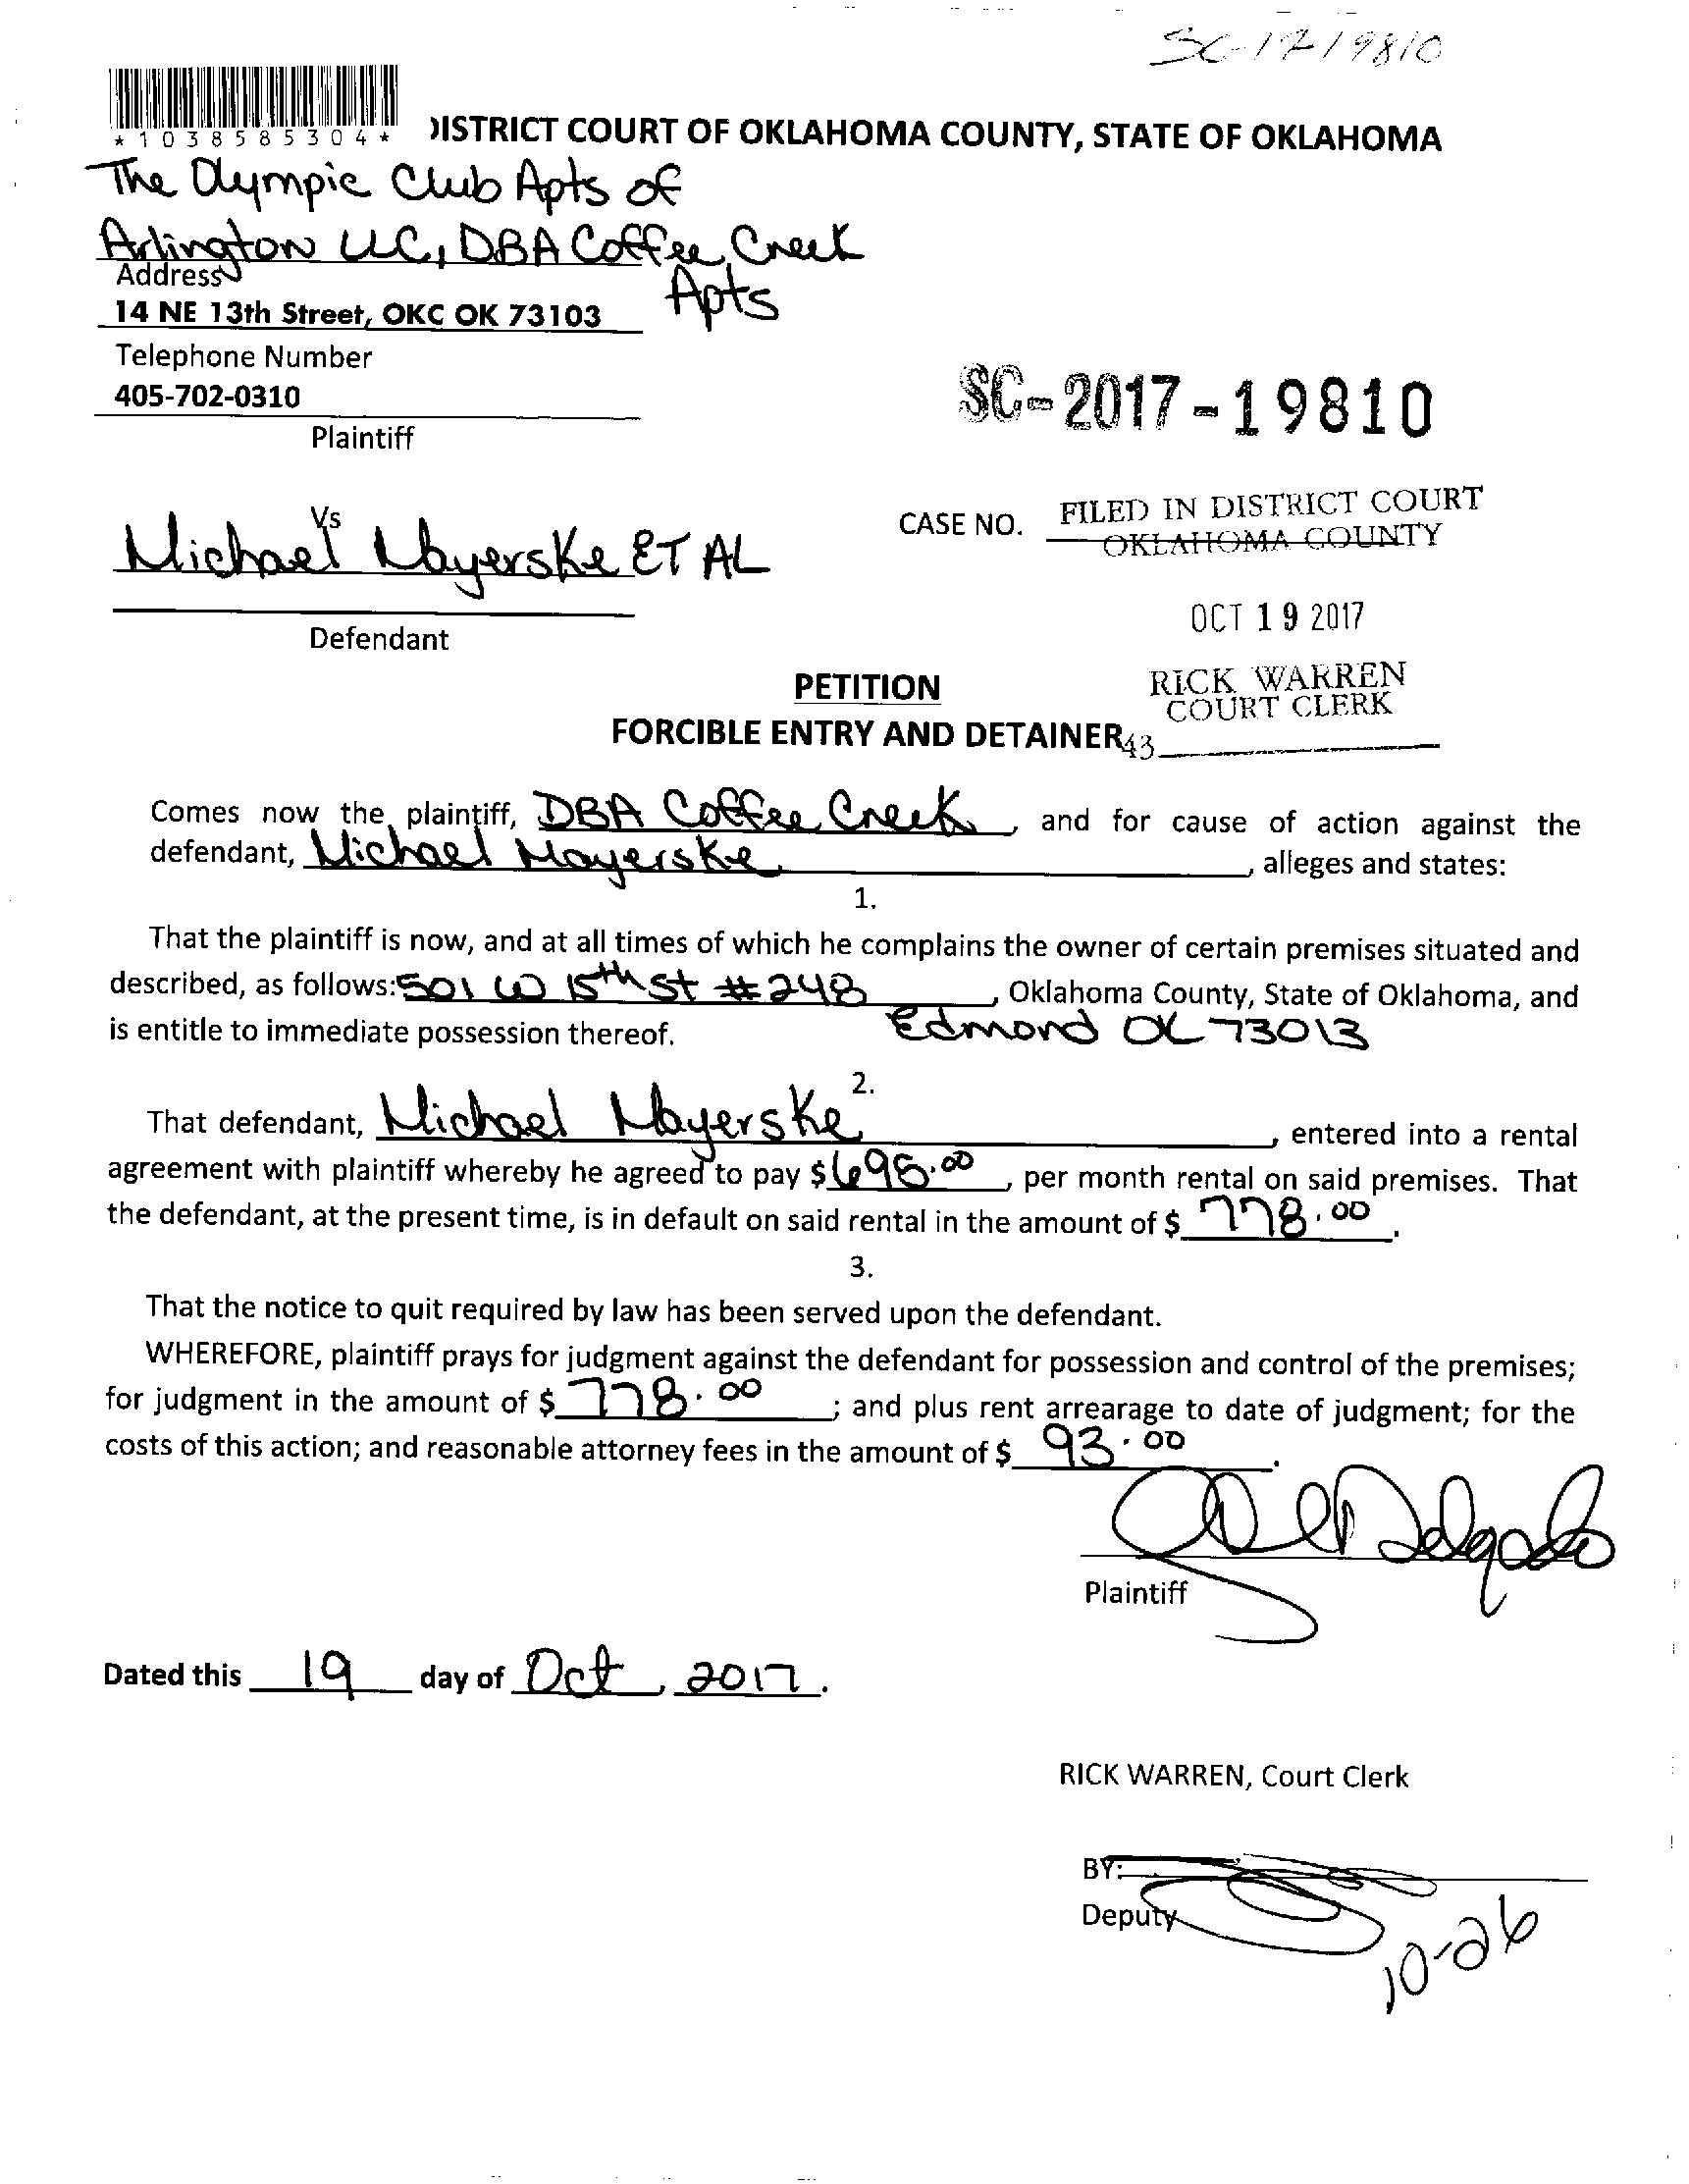 SC-17-19810
*1038585304*
DISTRICT COURT OF OKLAHOMA COUNTY, STATE OF OKLAHOMA
The Olympic Club Apts of
Arlington LLC, DBA Coffee Creek
Apts
Address
14 NE 13th Street, OKC OK 73103
Telephone Number
405-702-0310
Plaintiff
SC-2017-19810
Vs
Michael Mayerske ET AL
CASE NO.
FILED IN DISTRICT COURT
OKLAHOMA COUNTY
OCT 19 2017
Defendant
RICK WARREN
COURT CLERK
PETITION
FORCIBLE ENTRY AND DETAINER
43
Comes now the plaintiff, DBA Coffee Creek, and for cause of action against the
defendant, Michael Mayerske, alleges and states:
1.
That the plaintiff is now, and at all times of which he complains the owner of certain premises situated and
described, as follows: 501 W 15th St #248, Oklahoma County, State of Oklahoma, and
Edmond OK 73013
is entitle to immediate possession thereof.
2.
That defendant, Michael Mayerske, entered into a rental
agreement with plaintiff whereby he agreed to pay $ .00, per month rental on said premises. That
the defendant, at the present time, is in default on said rental in the amount of $ 778.00.
3.
That the notice to quit required by law has been served upon the defendant.
WHEREFORE, plaintiff prays for judgment against the defendant for possession and control of the premises;
for judgment in the amount of $ 778.00; and plus rent arrearage to date of judgment; for the
costs of this action; and reasonable attorney fees in the amount of $ 93.00.
Delgado
Plaintiff
Dated this 19 day of Oct, 2017.
RICK WARREN, Court Clerk
BY:
Deputy
10-26